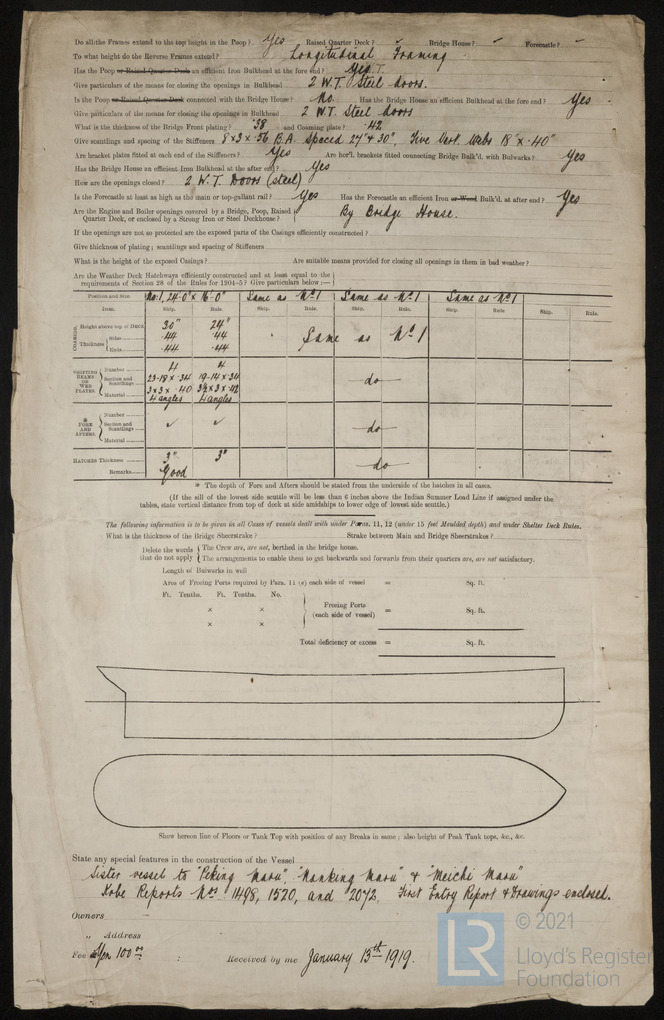 Do all the Frames extend to the top height in the Poop? Yes Raised Quarter Deck? ✓ Bridge House? ✓ Forecastle? ✓
To what height do the Reverse Frames extend? Longitudinal Framing
Has the Poop or Raised Quarter Deck an efficient Iron Bulkhead at the fore end? Yes
Give particulars of the means for closing the openings in Bulkhead 2 W.T. Steel doors.
Is the Poop or Raised Quarter Deck connected with the Bridge House? No. Has the Bridge House an efficient Bulkhead at the fore end? Yes
Give particulars of the means for closing the openings in Bulkhead 2 W.T. Steel doors
What is the thickness of the Bridge Front plating? .38 and Coaming plate? .42
Give scantlings and spacing of the Stiffeners 8 x 3 x .36 B.A. Spaced 27" & 30", Five Vert. Webs 18" x .40"
Are bracket plates fitted at each end of the Stiffeners? Yes Are hor'l. brackets fitted connecting Bulk'd. with Bulwarks? Yes
Has the Bridge House an efficient Iron Bulkhead at the after end? Yes
How are the openings closed? 2 W.T. Doors (steel)
Is the Forecastle at least as high as the main or top-gallant rail? Yes Has the Forecastle an efficient Iron or Wood Bulk'd. at after end? Yes
Are the Engine and Boiler openings covered by a Bridge, Poop, Raised Quarter Deck, or enclosed by a Strong Iron or Steel Deckhouse? By Bridge House.
If the openings are not so protected are the exposed parts of the Casings efficiently constructed?
Give thickness of plating; scantlings and spacing of Stiffeners
What is the height of the exposed Casings? Are suitable means provided for closing all openings in them in bad weather?
Are the Weather Deck Hatchways efficiently constructed and at least equal to the requirements of Section 28 of the Rules for 1904-5? Give particulars below:—
Position and Size No. 1, 24'-0" x 16'-0" Same as No 1 Same as No 1 Same as No 1
Item. Ship. Rule. Ship. Rule. Ship. Rule. Ship. Rule. Ship. Rule.
COAMING. Height above top of DECK 30" 24"
Thickness Sides .44 .44 Same as No 1
Ends .44 .44
SHIFTING BEAMS OR WEB PLATES. Number 4 4
Section and Scantlings 23-18 x .34 19-14 x .34 do
3 x 3 x .40 3½ x 3 x .42
Material 4 angles 4 angles
* FORE AND AFTERS. Number
Section and Scantlings ✓ ✓ do
Material
HATCHES Thickness 3" 3" do
Remarks Good
* The depth of Fore and Afters should be stated from the underside of the hatches in all cases.
(If the sill of the lowest side scuttle will be less than 6 inches above the Indian Summer Load Line if assigned under the
tables, state vertical distance from top of deck at side amidships to lower edge of lowest side scuttle.)
The following information is to be given in all Cases of vessels dealt with under Paras. 11, 12 (under 15 feet Moulded depth) and under Shelter Deck Rules.
What is the thickness of the Bridge Sheerstrake? Strake between Main and Bridge Sheerstrakes?
Delete the words that do not apply
The Crew are, are not, berthed in the bridge house.
The arrangements to enable them to get backwards and forwards from their quarters are, are not satisfactory.
Length of Bulwarks in well
Area of Freeing Ports required by Para. 11 (e) each side of vessel = Sq. ft.
Ft. Tenths. Ft. Tenths. No.
× ×
× ×
Freeing Ports (each side of vessel) = Sq. ft.
Total deficiency or excess = Sq. ft.
Show hereon line of Floors or Tank Top with position of any Breaks in same; also height of Peak Tank tops, &c., &c.
State any special features in the construction of the Vessel
Sister vessel to "Peking Maru", "Nanking Maru" & "Meichi Maru"
Kobe Reports Nos 1498, 1520, and 2072, First Entry Report & Drawings enclosed.
Owners
" Address
Fee Yen 100 00 : Received by me January 13th 1919.
LR
© 2021
Lloyd's Register
Foundation